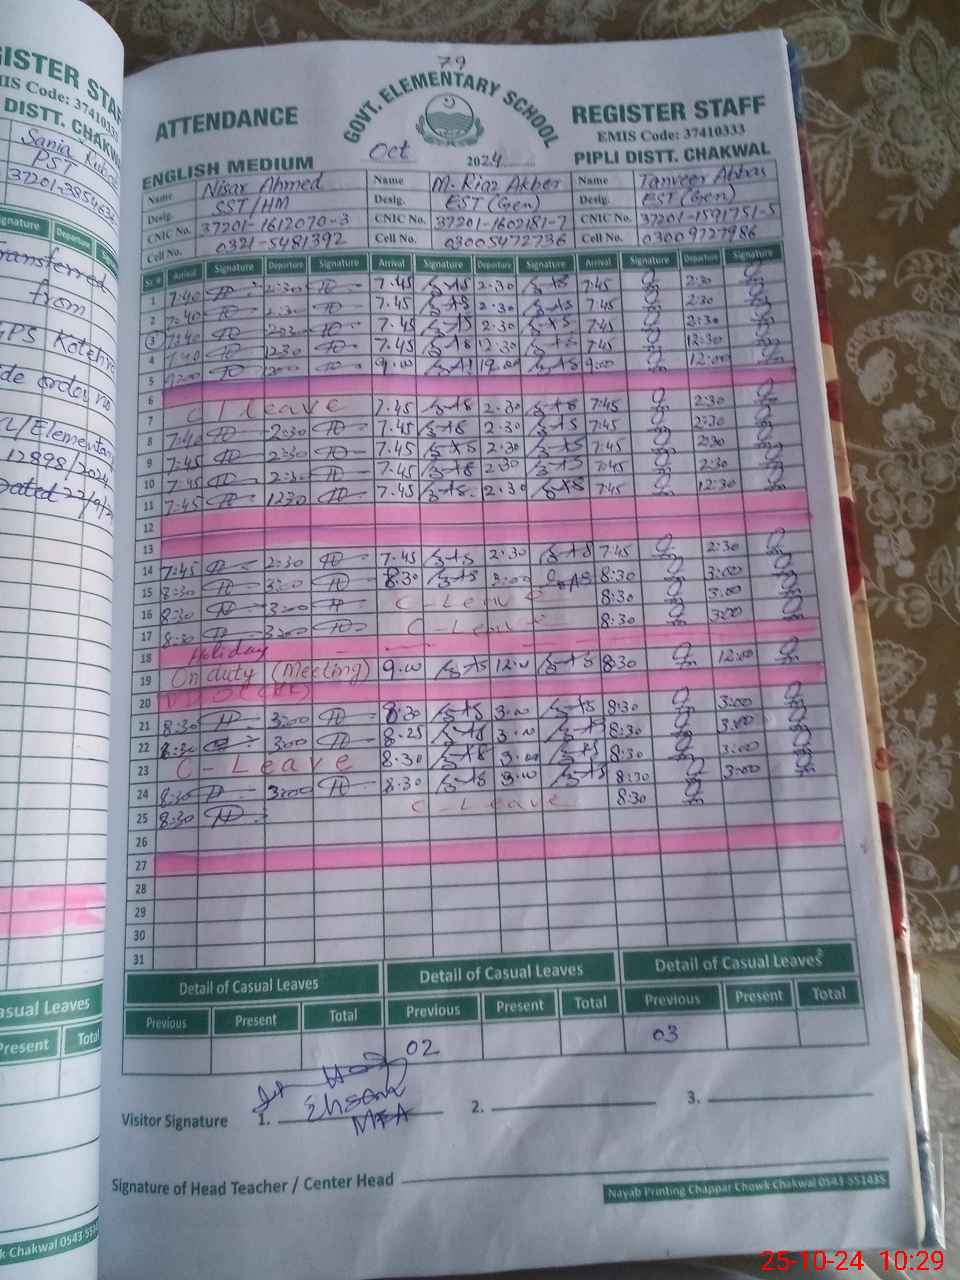 79
GOVT. ELEMENTARY SCHOOL
ATTENDANCE REGISTER STAFF
EMIS Code: 37410333
ENGLISH MEDIUM Oct 2024 PIPLI DISTT. CHAKWAL
Name Nisar Ahmed Name M. Riaz Akber Name Tanveer Abbas
Desig. SST/HM Desig. EST (Gen) Desig. EST (Gen)
CNIC No. 37201-1612070-3 CNIC No. 37201-1602151-7 CNIC No. 37201-1591751-5
Cell No. 0321-5481392 Cell No. 03005472736 Cell No. 03009727986
Sr # Arrival Signature Departure Signature Arrival Signature Departure Signature Arrival Signature Departure Signature
1 7:40 2:30 7.45 2.30 7:45 2:30
2 7:40 2:30 7.45 2.30 7:45 2:30
3 7:40 2:30 7.45 2.30 7:45 2:30
4 7:40 1230 7.45 12.30 7:45 12:30
5 9:00 1200 9.00 12.00 9:00 12:00
6
7 C Leave 7.45 2.30 7:45 2:30
8 7:40 2:30 7.45 2.30 7:45 2:30
9 7:45 2:30 7.45 2.30 7:45 2:30
10 7:45 2:30 7.45 2.30 7:45 2:30
11 7:45 1230 7.45 2.30 7:45 12:30
12
13
14 7:45 2:30 7.45 2.30 7:45 2:30
15 8:30 3:00 8.30 3:00 8:30 3:00
16 8:30 3:00 C-Leave 8:30 3:00
17 8:30 3:00 C-Leave 8:30 3:00
18 Holiday
19 On duty (Meeting) 9.00 12.00 8:30 12:00
20
21 8:30 3:00 8.30 3.00 8:30 3:00
22 8:30 3:00 8.25 3.00 8:30 3:00
23 C-Leave 8.30 3.00 8:30 3:00
24 8:30 3:00 8.30 3.00 8:30 3:00
25 8:30 C-Leave 8:30
26
27
28
29
30
31
Detail of Casual Leaves Detail of Casual Leaves Detail of Casual Leaves
Previous Present Total Previous Present Total Previous Present Total
02 03
Ehsan
MEA
Visitor Signature 1. 2. 3.
Signature of Head Teacher / Center Head
Nayab Printing Chappar Chowk Chakwal 0543-551435
GISTER STA
MIS Code: 3741033
DISTT. CHAKWA
Sania
PST
Signature Departure
Transferred
from
GPS
order no
/Elementary
12898/2024
Dated 22/9/2
Casual Leaves
Present Total
Chakwal 0543-55
25-10-24 10:29